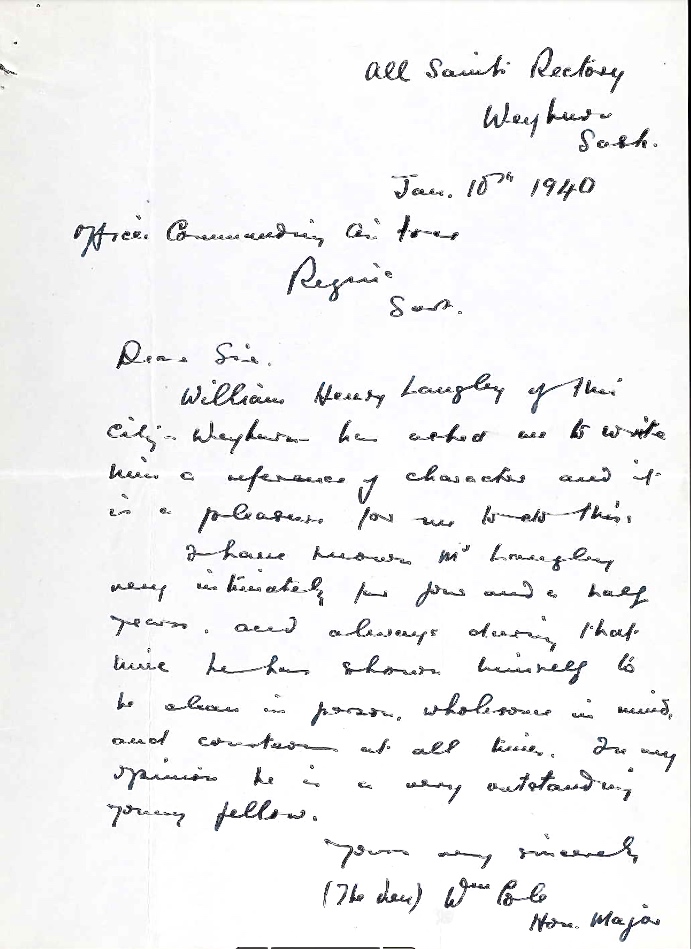 All Saints Rectory
Weyburn
Sask.
Jan. 10th 1940
Officer Commanding Air Force
Regina
Sask.
Dear Sir.
William Henry Langley of this
city - Weyburn has asked me to write
him a reference of character and it
is a pleasure for me to do this.
I have known Mr Langley
very intimately for four and a half
years, and always during that
time he has shown himself to
be clean in person, wholesome in mind,
and courteous at all times. In my
opinion he is a very outstanding
young fellow.
Yours very sincerely
(The Rev) Wm
Hon. Major